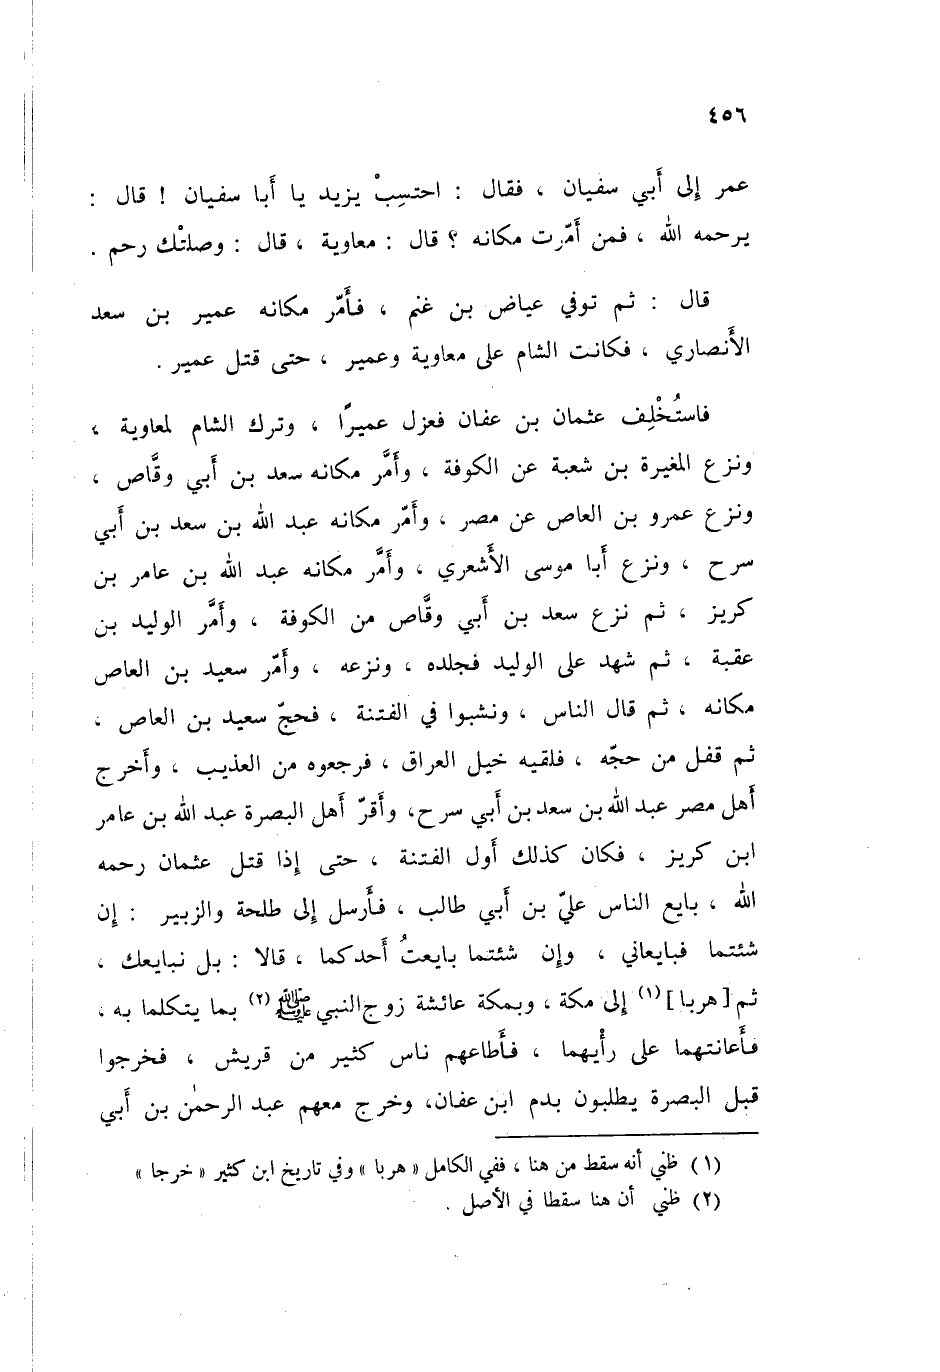 ٤٥٦
عمر إلى أَبي سفيان ، فقال : احتسِبْ يزيد يا أَبا سفيان ! قال :
يرحمه الله ، فمن أَمّرت مكانه ؟ قال : معاوية ، قال : وصلتْك رحم .
قال : ثم توفي عياض بن غنم ، فأَمّر مكانه عمير بن سعد
الأَنصاري ، فكانت الشام على معاوية وعمير ، حتى قتل عمير .
فاستُخْلِف عثمان بن عفان فعزل عميرًا ، وترك الشام لمعاوية ،
ونزع المغيرة بن شعبة عن الكوفة ، وأَمَّر مكانه سعد بن أَبي وقَّاص ،
ونزع عمرو بن العاص عن مصر ، وأَمّر مكانه عبد الله بن سعد بن أَبي
سرح ، ونزع أَبا موسى الأَشعري ، وأَمَّر مكانه عبد الله بن عامر بن
كريز ، ثم نزع سعد بن أَبي وقَّاص من الكوفة ، وأَمَّر الوليد بن
عقبة ، ثم شهد على الوليد فجلده ، ونزعه ، وأَمّر سعيد بن العاص
مكانه ، ثم قال الناس ، ونشبوا في الفتنة ، فحجّ سعيد بن العاص ،
ثم قفل من حجّه ، فلقيه خيل العراق ، فرجعوه من العذيب ، وأَخرج
أَهل مصر عبد الله بن سعد بن أَبي سرح، وأَقرّ أَهل البصرة عبد الله بن عامر
ابن كريز ، فكان كذلك أول الفتنة ، حتى إذا قتل عثمان رحمه
الله ، بايع الناس عليّ بن أَبي طالب ، فأَرسل إلى طلحة والزبير : إن
شئتما فبايعاني ، وإن شئتما بايعتُ أَحدكما ، قالا : بل نبايعك ،
ثم [هربا] (١) إلى مكة ، وبمكة عائشة زوج النبي ﷺ (٢) بما يتكلما به ،
فأَعانتهما على رأْيهما ، فأَطاعهم ناس كثير من قريش ، فخرجوا
قبل البصرة يطلبون بدم ابن عفان، وخرج معهم عبد الرحمٰن بن أَبي
(١) ظني أنه سقط من هنا ، ففي الكامل « هربا » وفي تاريخ ابن كثير « خرجا »
(٢) ظني أن هنا سقطا في الأصل .